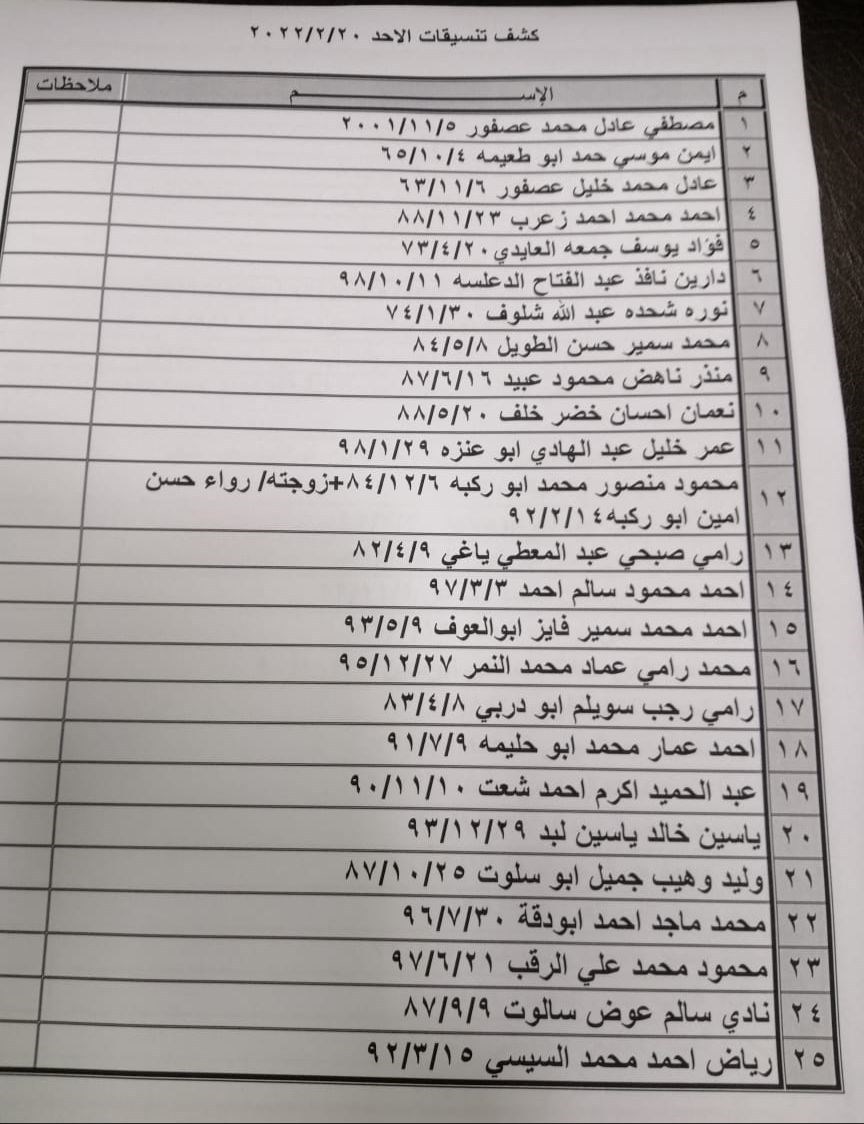 كشف تنسيقات الاحد ٢٠٢٢/٢/٢٠
م الإســـم ملاحظات
١ مصطفي عادل محمد عصفور ٢٠٠١/١١/٥
٢ ايمن موسي حمد ابو طعيمه ٦٥/١٠/٤
٣ عادل محمد خليل عصفور ٦٣/١١/٦
٤ احمد محمد احمد زعرب ٨٨/١١/٢٣
٥ فؤاد يوسف جمعه العايدي ٧٣/٤/٢٠
٦ دارين نافذ عبد الفتاح الدعلسه ٩٨/١٠/١١
٧ نوره شحده عبد الله شلوف ٧٤/١/٣٠
٨ محمد سمير حسن الطويل ٨٤/٥/٨
٩ منذر ناهض محمود عبيد ٨٧/٦/١٦
١٠ نعمان احسان خضر خلف ٨٨/٥/٢٠
١١ عمر خليل عبد الهادي ابو عنزه ٩٨/١/٢٩
١٢ محمود منصور محمد ابو ركبه ٨٤/١٢/٦+زوجته/ رواء حسن
امين ابو ركبه٩٢/٢/١٤
١٣ رامي صبحي عبد المعطي ياغي ٨٢/٤/٩
١٤ احمد محمود سالم احمد ٩٧/٣/٣
١٥ احمد محمد سمير فايز ابوالعوف ٩٣/٥/٩
١٦ محمد رامي عماد محمد النمر ٩٥/١٢/٢٧
١٧ رامي رجب سويلم ابو دربي ٨٣/٤/٨
١٨ احمد عمار محمد ابو حليمه ٩١/٧/٩
١٩ عبد الحميد اكرم احمد شعت ٩٠/١١/١٠
٢٠ ياسين خالد ياسين لبد ٩٣/١٢/٢٩
٢١ وليد وهيب جميل ابو سلوت ٨٧/١٠/٢٥
٢٢ محمد ماجد احمد ابودقة ٩٦/٧/٣٠
٢٣ محمود محمد علي الرقب ٩٧/٦/٢١
٢٤ نادي سالم عوض سالوت ٨٧/٩/٩
٢٥ رياض احمد محمد السيسي ٩٢/٣/١٥